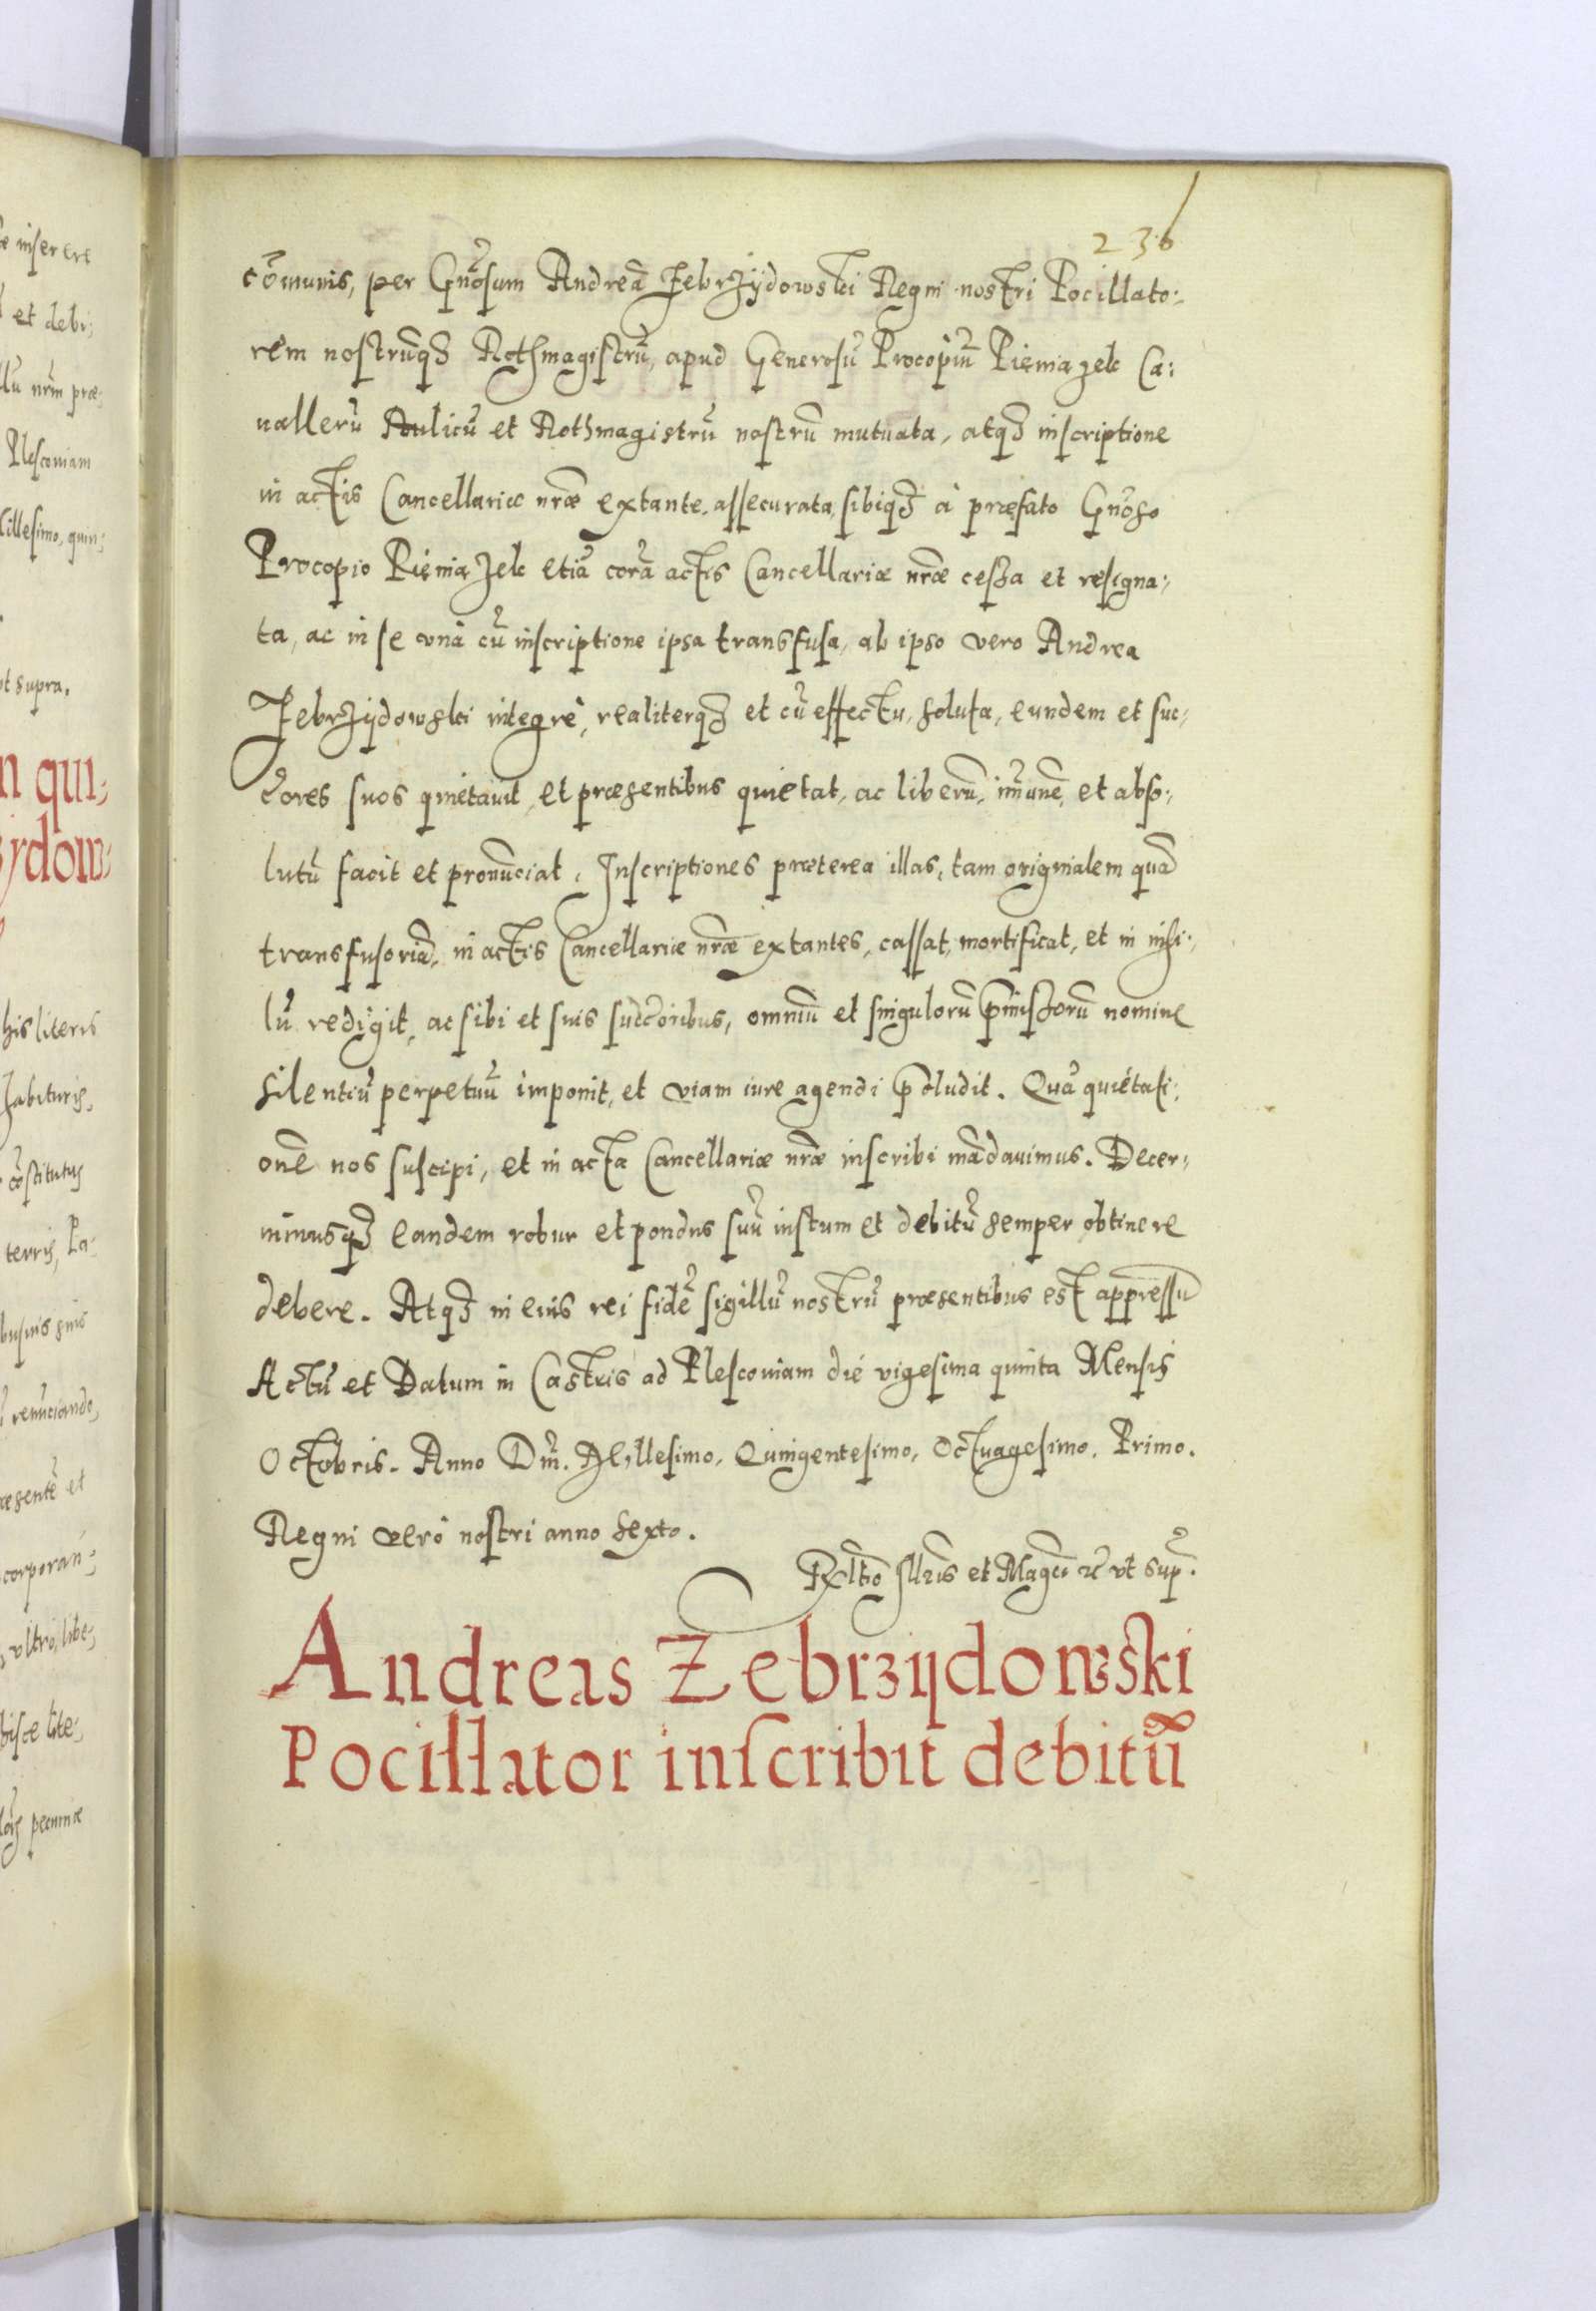 236
cōmunis, per Gnōsum Andreā Zebrzÿdowski Regni nostri Pocillato:
rem nostrūq3 Rothmagistrū, apud Generosū Procopiū Pieniazek Ca:
ualleru Aulicū et Rothmagistrū nostrū mutuata, atq3 inscriptione
in actis Cancellariæ nr̄æ extante assecurata, sibiq3 à præfato Gnōso
Procopio Pieniazek etiā corā actis Cancellariæ nr̄æ cessa et resigna:
ta, ac in se vnà cū inscriptione ipsa transfusa, ab ipso vero Andrea
Zebrzÿdowski integrè, realiterq3 et cū effectu, soluta, eundem et suc:
c̄ores suos quietauit, et præsentibus quietat, ac liberū, im̄unē, et abso:
lutū facit et pronūciat. Inscriptiones præterea illas, tam originalem quā
transfusoriā, in actis Cancellariæ nr̄æ extantes, cassat, mortificat, et in nihi:
lū redigit, ac sibi et suis succ̄oribus, omniū et singulorū p̄missorū nomine
silentiū perpetuū imponit, et viam iure agendi p̄cludit. Quā quietati:
onē nos suscipi, et in acta Cancellariæ nr̄æ inscribi mādauimus. Decer:
nimusq3 eandem robur et pondus suū iustum et debitū semper obtinere
debere. Atq3 in euis rei fidē sigillū nostrū præsentibus est appressū
Actū et Datum in Castris ad Plescouiam die vigesima quinta Mensis
Octobris. Anno Dn̄i. Millesimo, Quingentesimo, Octuagesimo, Primo.
Regni vero nostri anno sexto.
Relatio Illr̄is et Magci etc̄ vt sup̄.
Andreas Zebrzÿdowski
Pocillator inscribit debitū
e inserere
et debi:
llū nrm̄ præ:
Plescouiam
illesimo, quin:
vt supra.
n qui:
ÿdow:
his literis
habituris,
cōstitutus
terris, Pa:
renūciando,
æsentē et
corporan:
vltrò, libe:
hisce lite:
pecuniæ